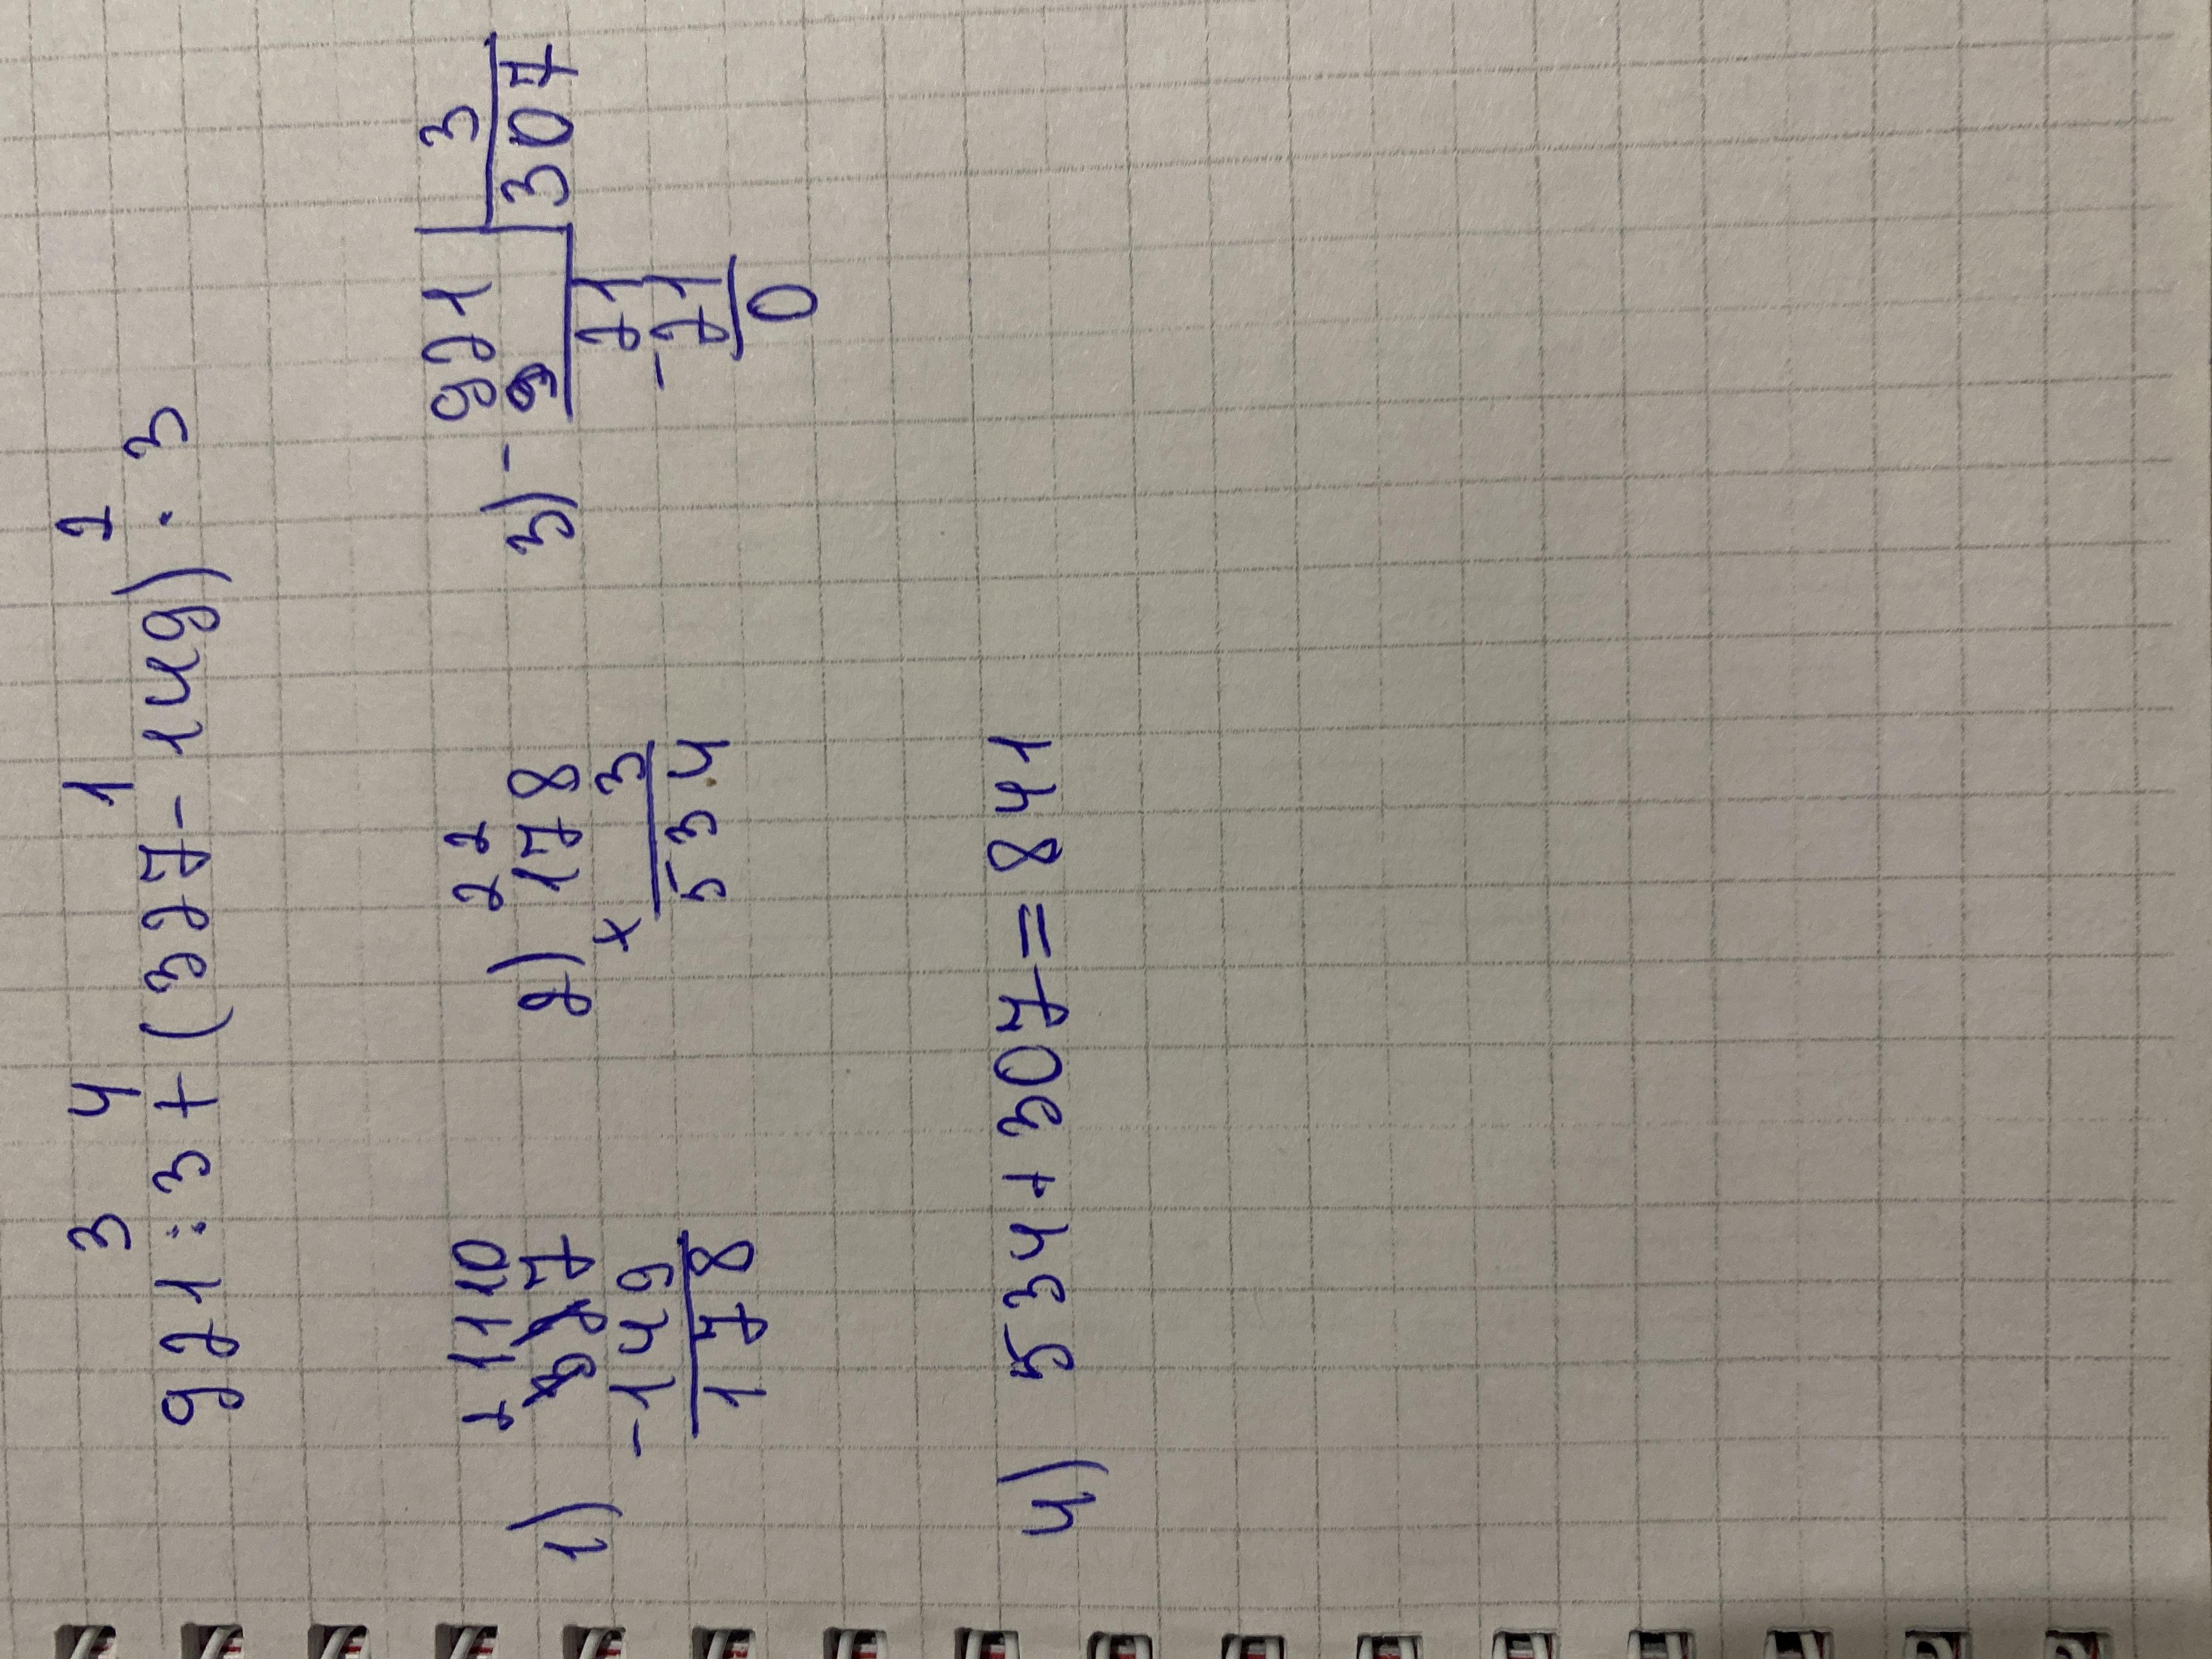 3 4 1 2
921 : 3 + (327 - 149) · 3
1) 2 11 10
327
- 149
178
2) 2 2
178
× 3
534
3) - 921 | 3
9 307
21
- 21
0
4) 534 + 307 = 841